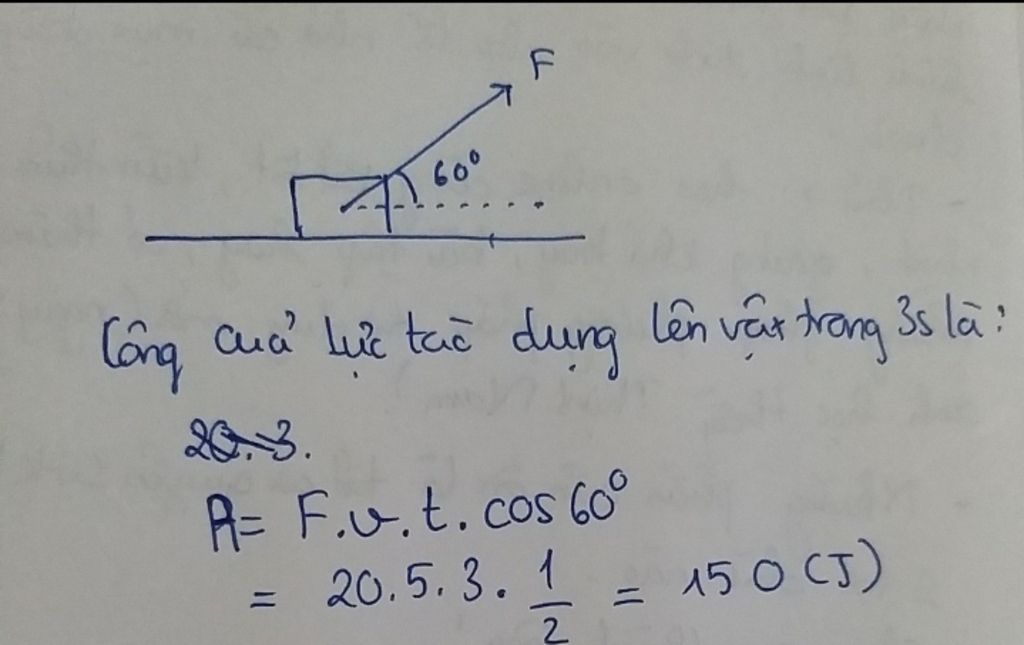 F
60°
Công cuả lực tác dụng lên vật trong 3s là:
20.3.
A= F.v.t.cos60°
= 20.5.3. 1/2 = 150 (J)